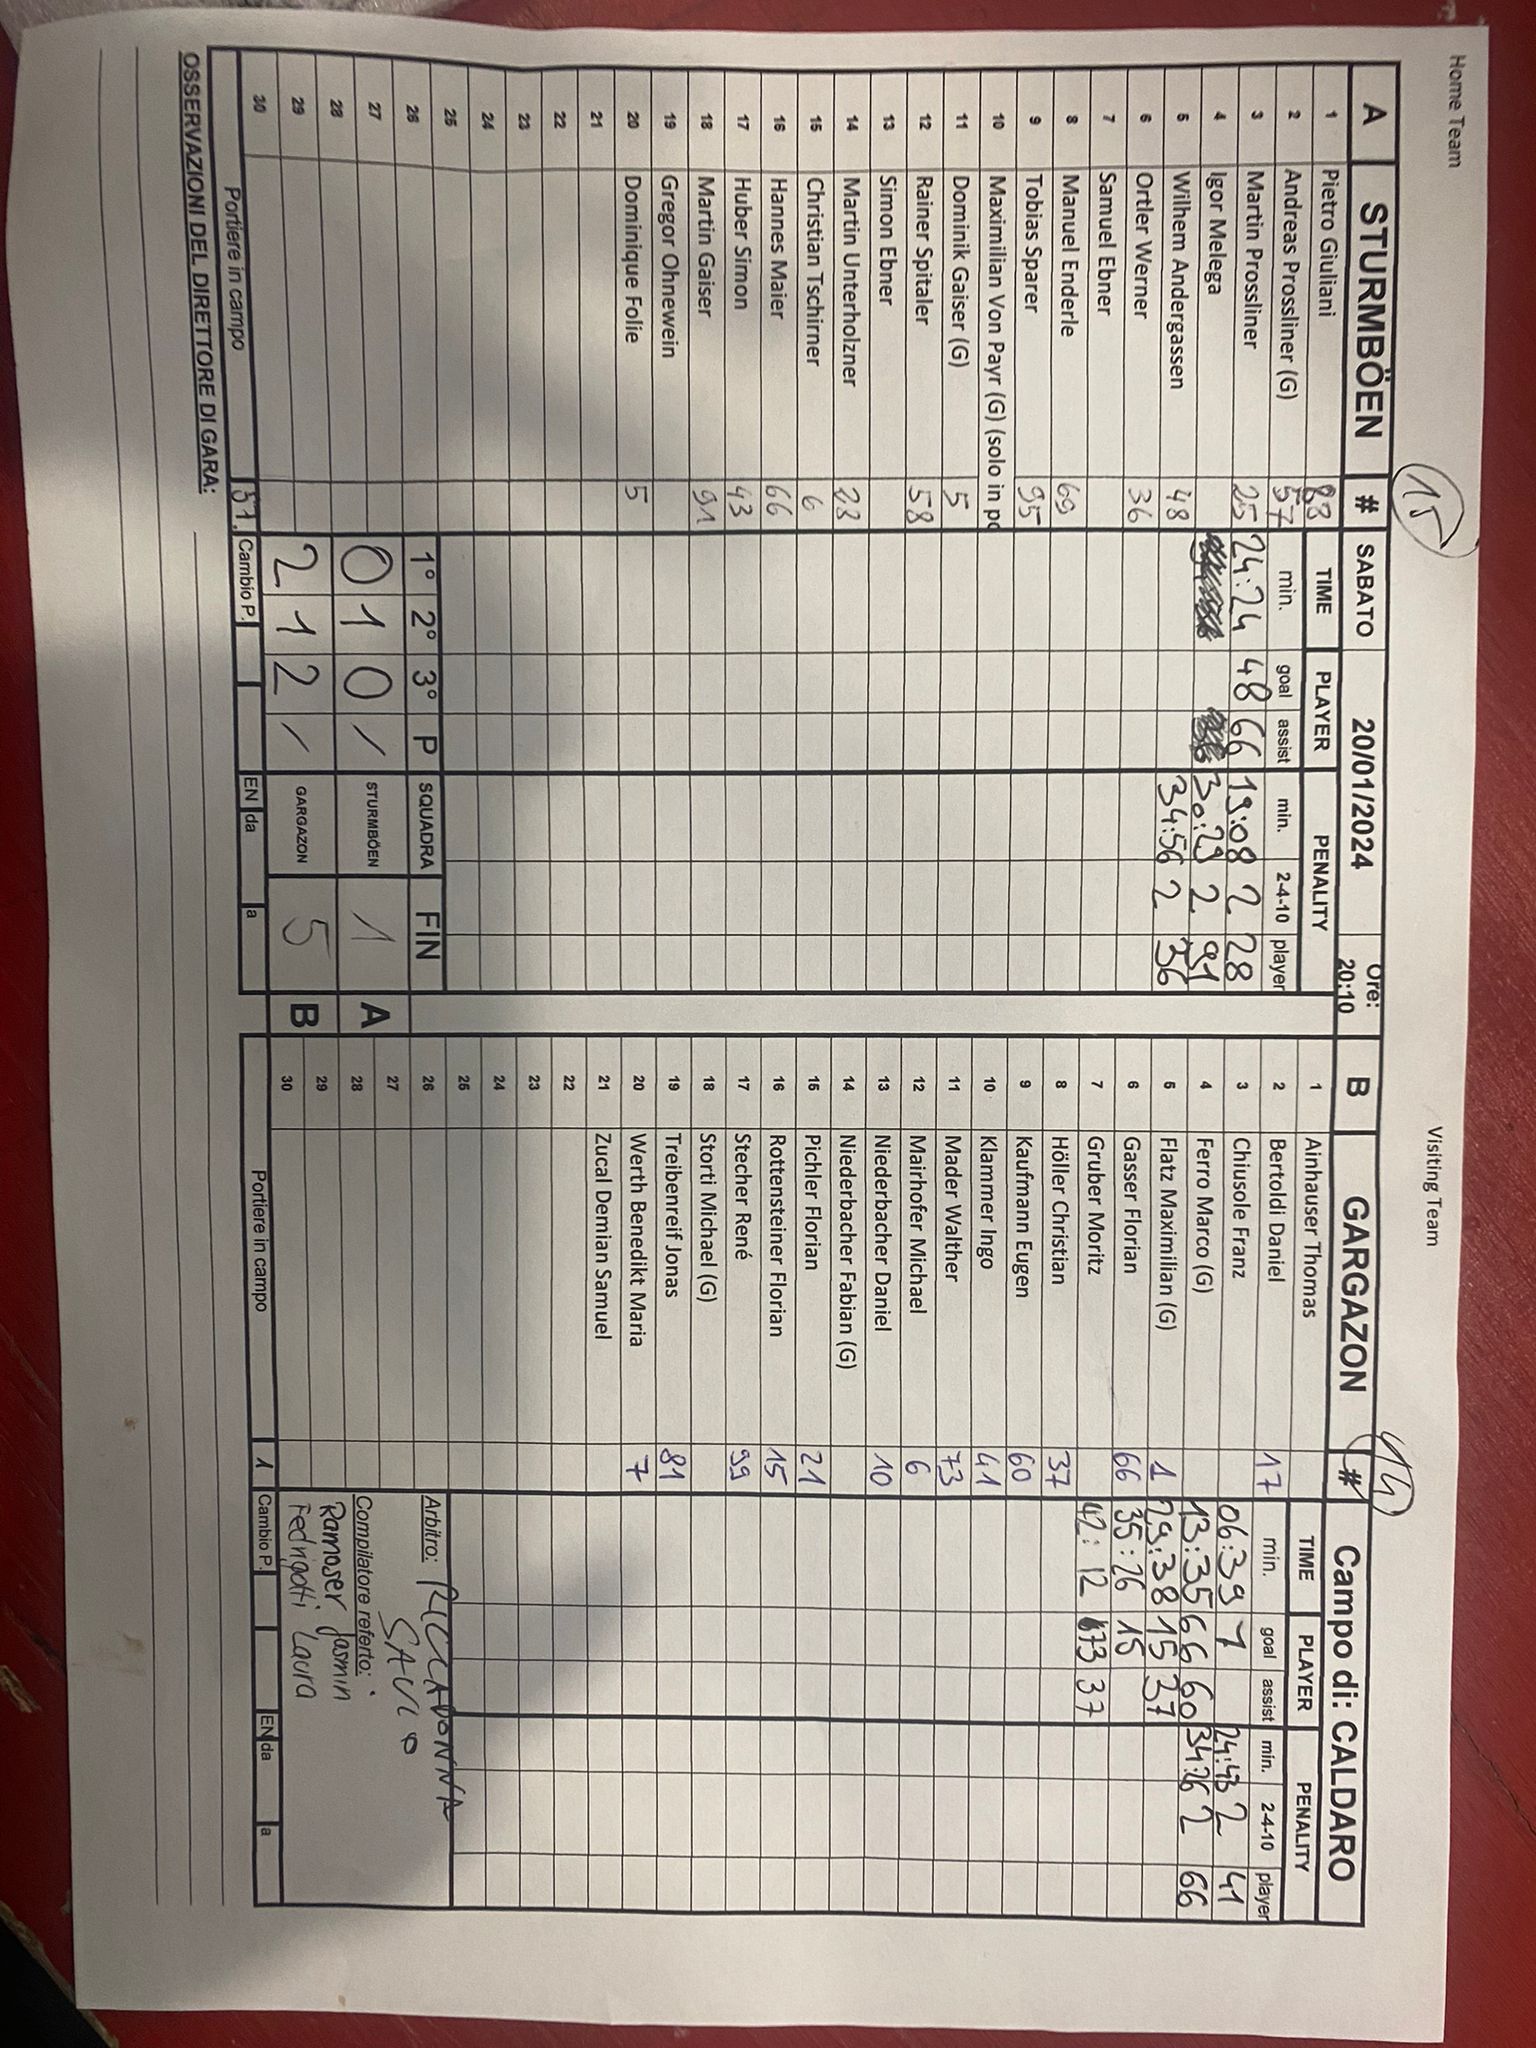 Home Team
Visiting Team
15
14
A STURMBÖEN # SABATO 20/01/2024 Ore: 20:10
TIME PLAYER PENALITY
min. goal assist min. 2-4-10 player
1 Pietro Giuliani 88
2 Andreas Prossliner (G) 57
3 Martin Prossliner 25 24:24 48 66 19:08 2 28
4 Igor Melega 30:29 2 91
5 Wilhem Andergassen 48 34:56 2 36
6 Ortler Werner 36
7 Samuel Ebner
8 Manuel Enderle 69
9 Tobias Sparer 95
10 Maximilian Von Payr (G) (solo in po
11 Dominik Gaiser (G) 5
12 Rainer Spitaler 58
13 Simon Ebner
14 Martin Unterholzner 28
15 Christian Tschirner 6
16 Hannes Maier 66
17 Huber Simon 43
18 Martin Gaiser 91
19 Gregor Ohnewein
20 Dominique Folie 5
21
22
23
24
25
26
27
28
29
30
1° 2° 3° P SQUADRA FIN
0 1 0 / STURMBÖEN 1 A
2 1 2 / GARGAZON 5 B
Portiere in campo 57. Cambio P. EN da a
B GARGAZON # Campo di: CALDARO
TIME PLAYER PENALITY
min. goal assist min. 2-4-10 player
1 Ainhauser Thomas
2 Bertoldi Daniel 17
3 Chiusole Franz 06:39 7 24:43 2 41
4 Ferro Marco (G) 13:35 66 60 34:26 2 66
5 Flatz Maximilian (G) 1 29:38 15 37
6 Gasser Florian 66 35:26 15
7 Gruber Moritz 42:12 73 37
8 Höller Christian 37
9 Kaufmann Eugen 60
10 Klammer Ingo 41
11 Mader Walther 73
12 Mairhofer Michael 6
13 Niederbacher Daniel 10
14 Niederbacher Fabian (G)
15 Pichler Florian 21
16 Rottensteiner Florian 15
17 Stecher René 99
18 Storti Michael (G)
19 Treibenreif Jonas 81
20 Werth Benedikt Maria 7
21 Zucal Demian Samuel
22
23
24
25
26
27
28
29
30
Arbitro: RICCADONNA
SAVIO
Compilatore referto:
Ramoser Jasmin
Fedrigotti Laura
Portiere in campo 1 Cambio P. EN da a
OSSERVAZIONI DEL DIRETTORE DI GARA: